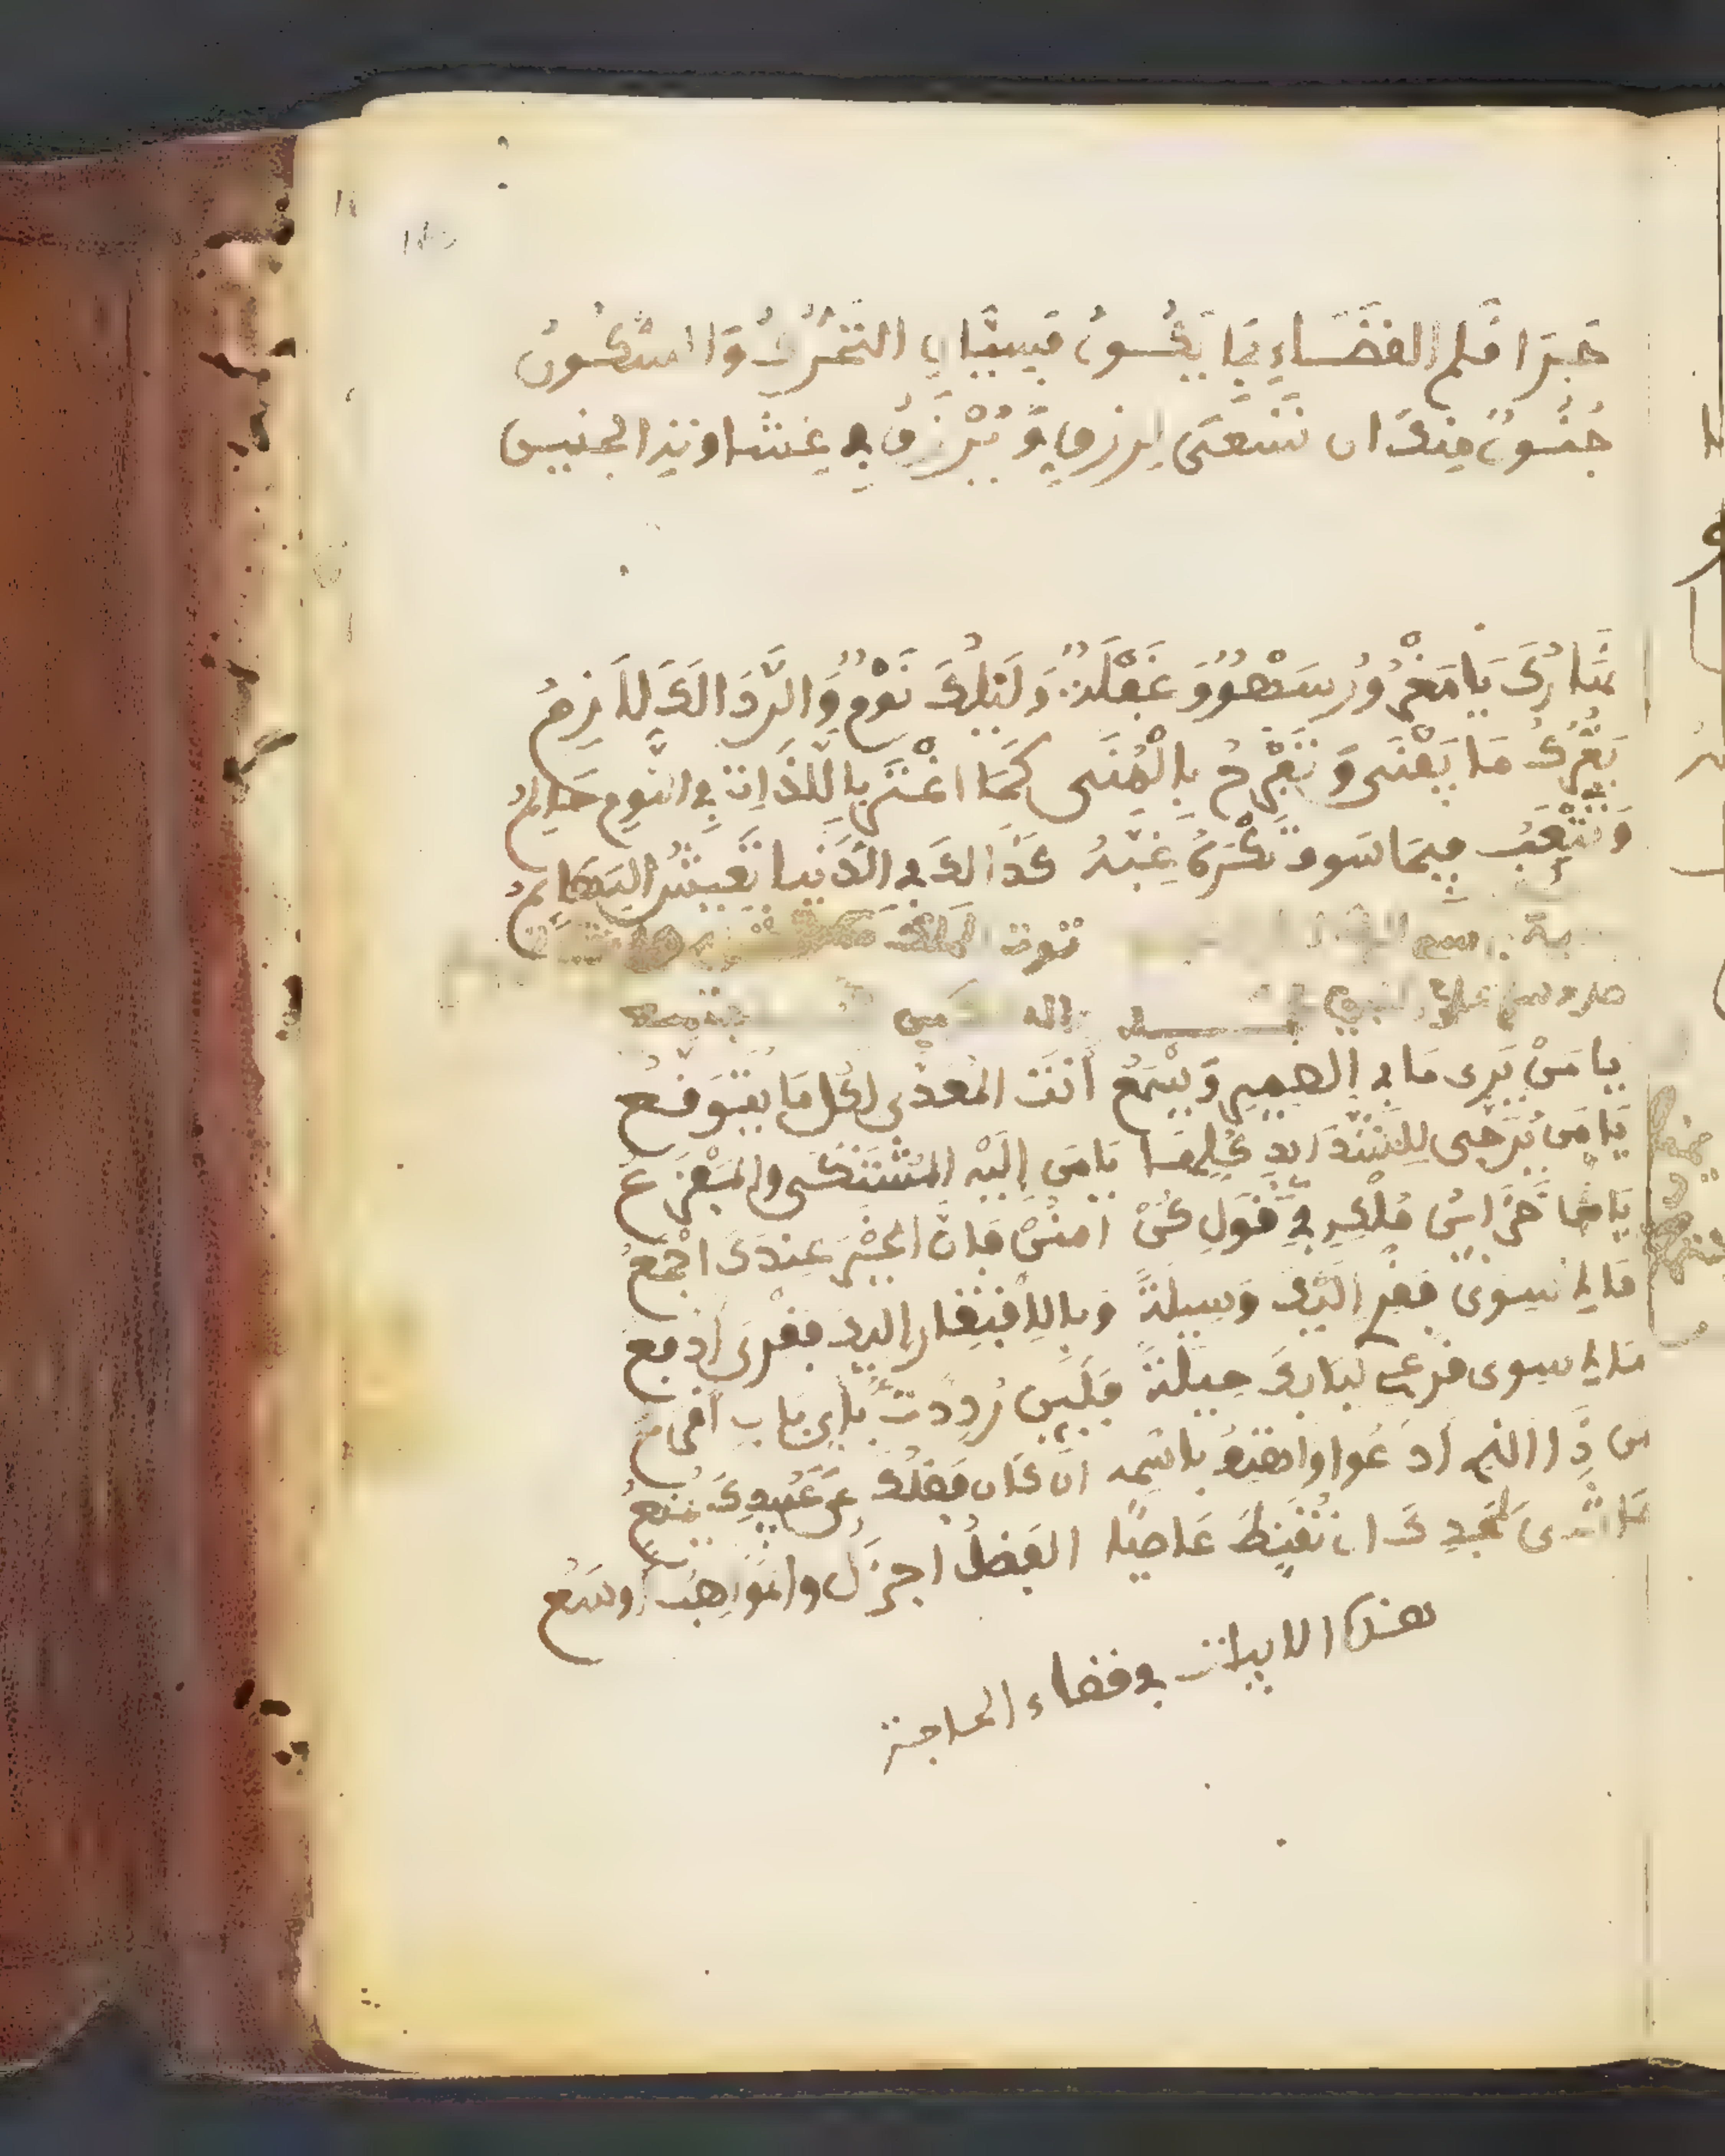 جَرَا فَلم الفضَاءِ بِمَا يَكُسونُ فَسِيَّانِ التَّحَرُّكُ وَالسُّكُونُ
جُنُونٌ مِنكَ ان تَسْعَى لِرزقٍ وَيُرْزَقُ فِي غِشَاوَتِهِ الجنيں
نَهَارُكَ يَا مَغْرُورُ سَهْوٌ وَ غَفْلَةٌ وَلَيْلُكَ نَوْمٌ وَالرَّدَا لَكَ لاَزِمُ
يَغُرُّكَ مَا يَفْنَى وَ تَفْرَحُ بِالْمُنَى كَمَا اغْتَرَّ بِاللَّذَاتِ فِي النَّوْمِ حَالِمُ
وَتَتْعَبُ فِيمَا سَوف تَكْرَهُ غِبَّهُ كَذَالِكَ فِي الدُّنْيَا تَعِيشُ البَهَايِمُ
يا مَنْ يَرى مَا فِي الضمِيرِ وَيَسْمَعُ أنتَ المُعدُّ لِكُلِّ مَا يُتَوَقَّعُ
يَا مَن يُرَجَّى لِلشَّدَايدِ كُلِهَا يَا مَن إِلَيْهِ المُشْتَكَى والمَفْزَعُ
يَا مَن خَزَائنُ مُلْكِهِ فِي قَوْلِ كُنْ امنُنْ فَإنَّ الخَيْرَ عِندَكَ اجْمَعُ
مَا لِي سِوَى فَقْرِي إلَيْكَ وَسِيلَةٌ وَبِالاِفْتِقَارِ إليك فَقْرِي أدفع
مَا لِي سِوى قَرْعِي لبَابِكَ حِيلَةٌ فَلَئِن رُدِدتُ فَأَي بَابِ أقرع
من ذَا الذِي أدْعُوا واهتِفُ بِاسْمِهِ ان كَان فَضْلُكَ عَن عُبَيْدِكَ يُمْنعُ
حَاشَى لمَجدِكَ ان تُقَنِّطَ عَاصِيًا الفَضْلُ اجزَلُ والمَوَاهِبُ اوسَعُ
هذه الابيات فِي قضاء الحاجة